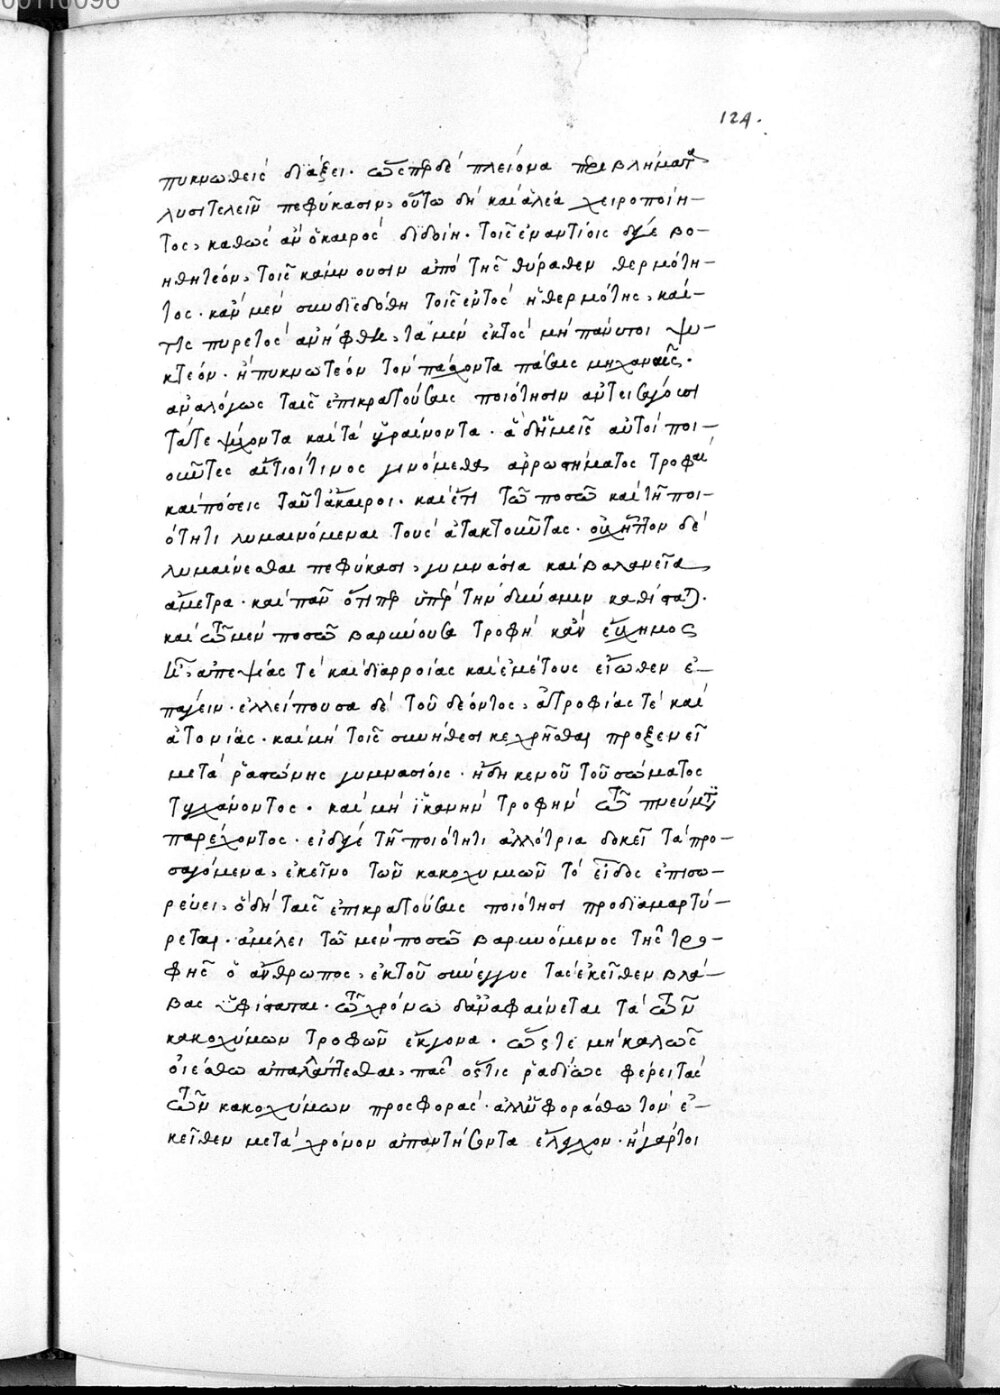 00110098
124.
πυκνωθεὶς διάξει. ὥσπερ δὲ πλείονα περιβλήματα
λυσιτελεῖν πεφύκασιν, οὕτω δὴ καὶ ἀλέα χειροποίη-
τος, καθὼς ἂν ὁ καιρὸς διδοίη. τοῖς ἐναντίοις δέ γε βο-
ηθητέον, τοῖς κάμνουσιν ἀπὸ τῆς θύραθεν θερμότη-
τος. κἂν μὲν συνδιεδόθη τοῖς ἐντὸς ἡ θερμότης, καί-
τις πυρετὸς ἀνήφθη, τὰ μὲν ἐκτὸς μὴ πάνυ τοι ψυ-
κτέον. ἢ πυκνωτέον τὸν πάσχοντα πάσαις μηχαναῖς.
ἀναλόγως ταῖς ἐπικρατούσαις ποιότησιν ἀντεισάγουσι
τά τε ψύχοντα καὶ τὰ ὑγραίνοντα. ἃ δὴ ἡμεῖς αὐτοὶ ποι-
οῦντες αἴτιοί τινος γινόμεθα ἀρρωστήματος τροφαὶ
καὶ πόσεις ταῦτα ἄκαιροι. καὶ ἔτι τῷ ποσῷ καὶ τῇ ποι-
ότητι λυμαινόμεναι τοὺς ἀτακτοῦντας. οὐχ ἧττον δὲ
λυμαίνεσθαι πεφύκασι, γυμνάσια καὶ βαλανεῖα
ἄμετρα. καὶ πᾶν ὅτιπερ ὑπὲρ τὴν δύναμιν καθίσταται.
καὶ τῷ μὲν ποσῷ βαρύνουσα τροφὴ κἂν εὔχυμος
ᾖ, ἀπεψίας τὲ καὶ διαρροίας καὶ ἐμέτους εἴωθεν ἐ-
πάγειν. ἐλλείπουσα δὲ τοῦ δέοντος, ἀτροφίας τὲ καὶ
ἀτονίας. καὶ μὴ τοῖς συνήθεσι κεχρῆσθαι προξενεῖ
μετὰ ῥαστώνης γυμνασίοις. ἤδη κενοῦ τοῦ σώματος
τυγχάνοντος. καὶ μὴ ἱκανὴν τροφὴν τῷ πνεύματι
παρέχοντος. εἰ δέ γε τῇ ποιότητι ἀλλότρια δοκεῖ τὰ προ-
σαγόμενα, ἐκεῖνο τῶν κακοχυμιῶν τὸ εἶδος ἐπισω-
ρεύει, ὃ δὴ ταῖς ἐπικρατούσαις ποιότησι προδιαμαρτύ-
ρεται. ἀμέλει τῷ μὲν ποσῷ βαρυνόμενος τῆς τρο-
φῆς ὁ ἄνθρωπος, ἐκ τοῦ σύνεγγυς τὰς ἐκεῖθεν βλά-
βας ὑφίσταται. τῷ χρόνῳ δ' ἀναφαίνεται τὰ τῶν
κακοχύμων τροφῶν ἔκγονα. ὥστε μὴ καλῶς
οἰέσθω ἀπαλλάττεσθαι, πᾶς ὅστις ῥαδίως φέρει τὰς
τῶν κακοχύμων προσφοράς. ἀλλ' ὑφοράσθω τὸν ἐ-
κεῖθεν μετὰ χρόνον ἀπαντήσοντα ἔλεγχον. ἡ γάρ τοι